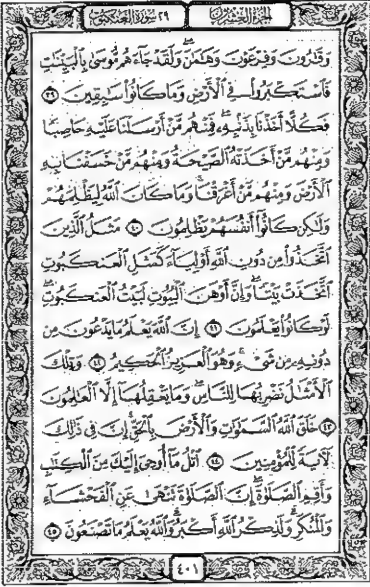 الجزء العشرون ٢٩ سورة العنكبوت
وَقَٰرُونَ وَفِرْعَوْنَ وَهَٰمَٰنَ وَلَقَدْ جَآءَهُم مُّوسَىٰ بِالْبَيِّنَٰتِ
فَاسْتَكْبَرُوا۟ فِى الْأَرْضِ وَمَا كَانُوا۟ سَٰبِقِينَ ٣٩
فَكُلًّا أَخَذْنَا بِذَنۢبِهِۦ فَمِنْهُم مَّنْ أَرْسَلْنَا عَلَيْهِ حَاصِبًا
وَمِنْهُم مَّنْ أَخَذَتْهُ الصَّيْحَةُ وَمِنْهُم مَّنْ خَسَفْنَا بِهِ
الْأَرْضَ وَمِنْهُم مَّنْ أَغْرَقْنَا وَمَا كَانَ اللَّهُ لِيَظْلِمَهُمْ
وَلَٰكِن كَانُوٓا۟ أَنفُسَهُمْ يَظْلِمُونَ ٤٠ مَثَلُ الَّذِينَ
اتَّخَذُوا۟ مِن دُونِ اللَّهِ أَوْلِيَآءَ كَمَثَلِ الْعَنكَبُوتِ
اتَّخَذَتْ بَيْتًا وَإِنَّ أَوْهَنَ الْبُيُوتِ لَبَيْتُ الْعَنكَبُوتِ
لَوْ كَانُوا۟ يَعْلَمُونَ ٤١ إِنَّ اللَّهَ يَعْلَمُ مَا يَدْعُونَ مِن
دُونِهِۦ مِن شَىْءٍ وَهُوَ الْعَزِيزُ الْحَكِيمُ ٤٢ وَتِلْكَ
الْأَمْثَٰلُ نَضْرِبُهَا لِلنَّاسِ وَمَا يَعْقِلُهَآ إِلَّا الْعَٰلِمُونَ
٤٣ خَلَقَ اللَّهُ السَّمَٰوَٰتِ وَالْأَرْضَ بِالْحَقِّ إِنَّ فِى ذَٰلِكَ
لَءَايَةً لِّلْمُؤْمِنِينَ ٤٤ اتْلُ مَآ أُوحِىَ إِلَيْكَ مِنَ الْكِتَٰبِ
وَأَقِمِ الصَّلَوٰةَ إِنَّ الصَّلَوٰةَ تَنْهَىٰ عَنِ الْفَحْشَآءِ
وَالْمُنكَرِ وَلَذِكْرُ اللَّهِ أَكْبَرُ وَاللَّهُ يَعْلَمُ مَا تَصْنَعُونَ ٤٥
٤٠١